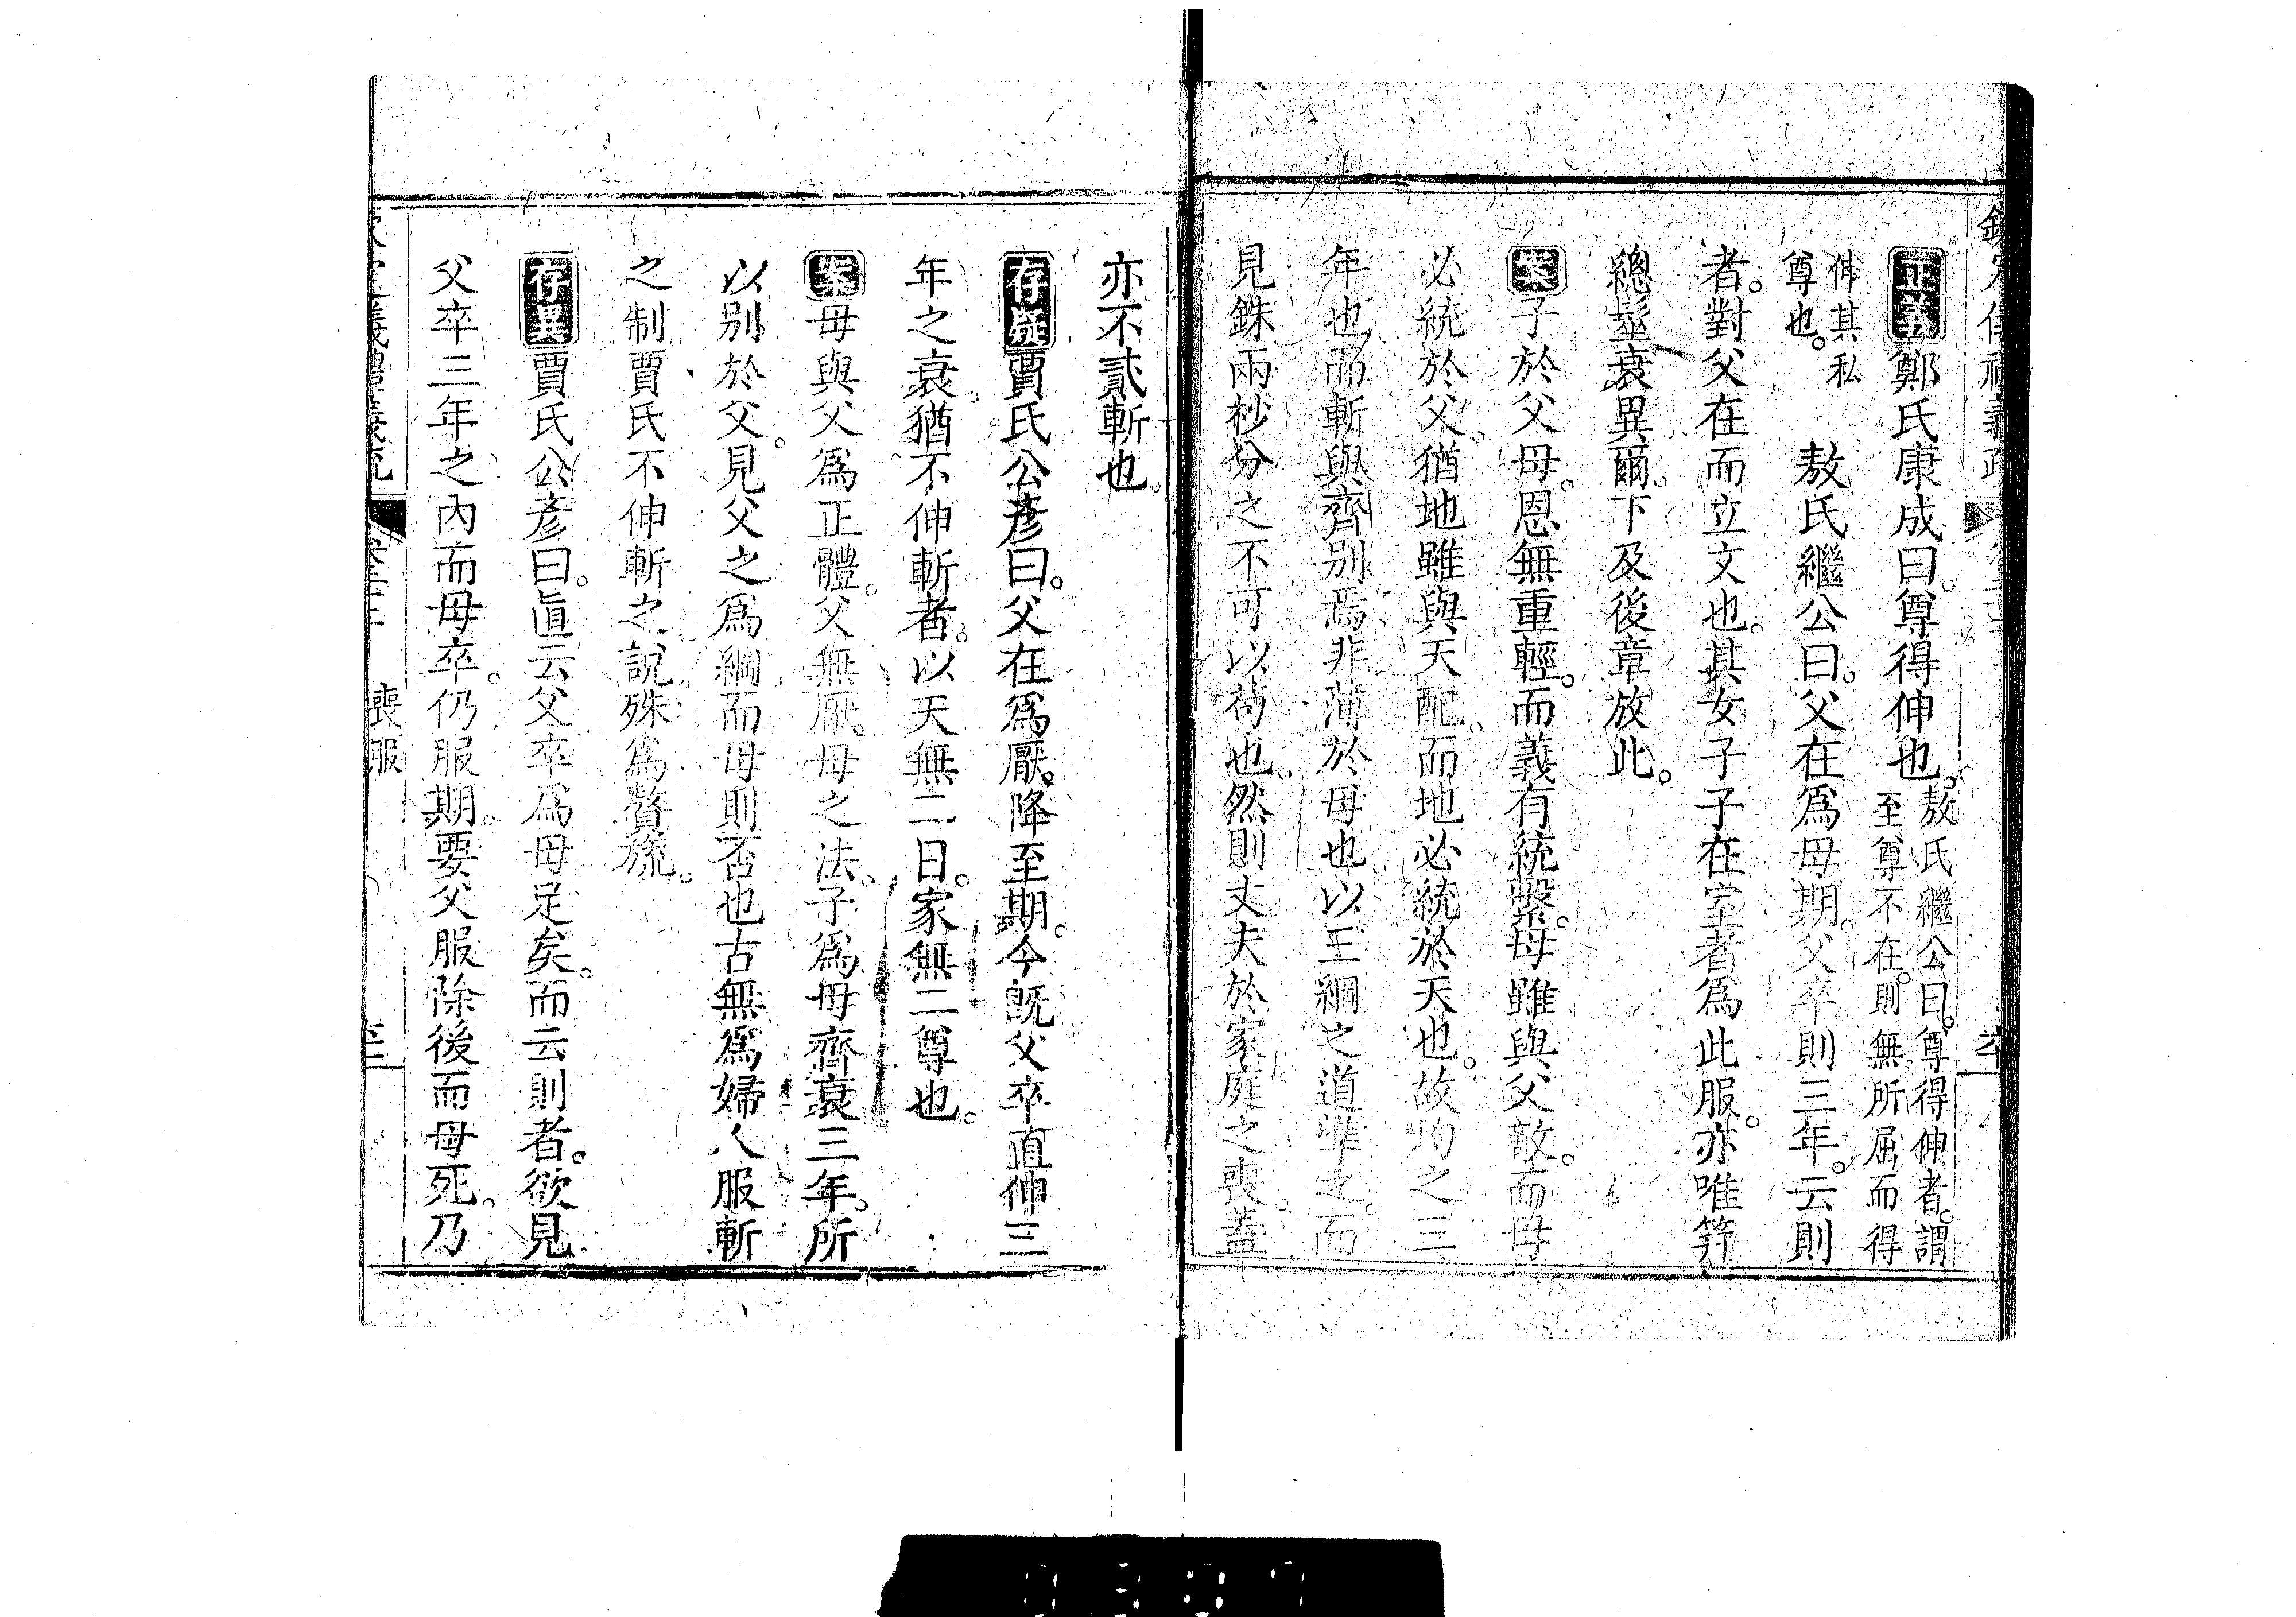 正義鄭氏康成曰。尊得伸也。敖氏繼公曰。尊得伸者。謂
至尊不在。則無所屈而得
伸其私
尊也。
敖氏繼公曰。父在爲母期。父卒則三年。云則
者。對父在而立文也。其女子子在室者爲此服。亦唯笄
總髽衰異爾。下及後章放此。
案子於父母。恩無重輕。而義有統繫。母雖與父敵。而母
必統於父。猶地雖與天配。而地必統於天也。故均之三
年也。而斬與齊別焉。非薄於母也。以王綱之道準之。而
見銖兩杪分之不可以苟也。然則丈夫於家庭之喪。蓋
亦不貳斬也。
存疑賈氏公彥曰。父在爲厭。降至期。今旣父卒。直伸三
年之衰。猶不伸斬者。以天無二日。家無二尊也。
案母與父爲正體。父無厭母之法。子爲母齊衰三年。所
以別於父。見父之爲綱而母則否也。古無爲婦人服斬
之制。賈氏不伸斬之說。殊爲贅疣。
存異賈氏公彥曰。直云父卒爲母足矣。而云則者。欲見
父卒三年之內而母卒。仍服期。要父服除後而母死。乃
喪服